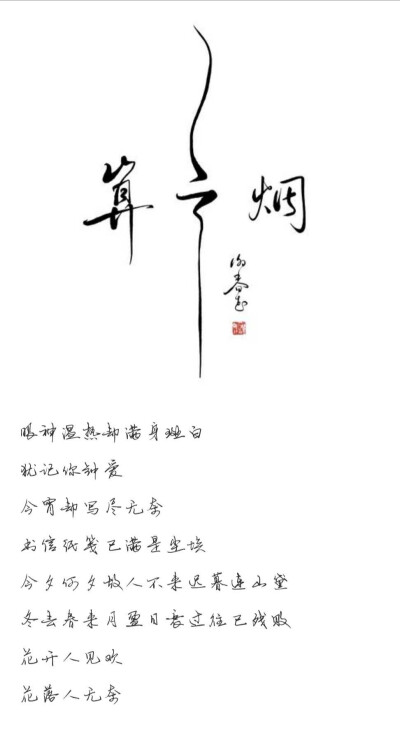 算云烟
眼神温热却满身斑白
犹记你钟爱
今宵却写尽无奈
书信纸笺已满是尘埃
今夕何夕故人不来迟暮连山黛
冬去春来月盈日衰过往已残败
花开人见欢
花落人无奈